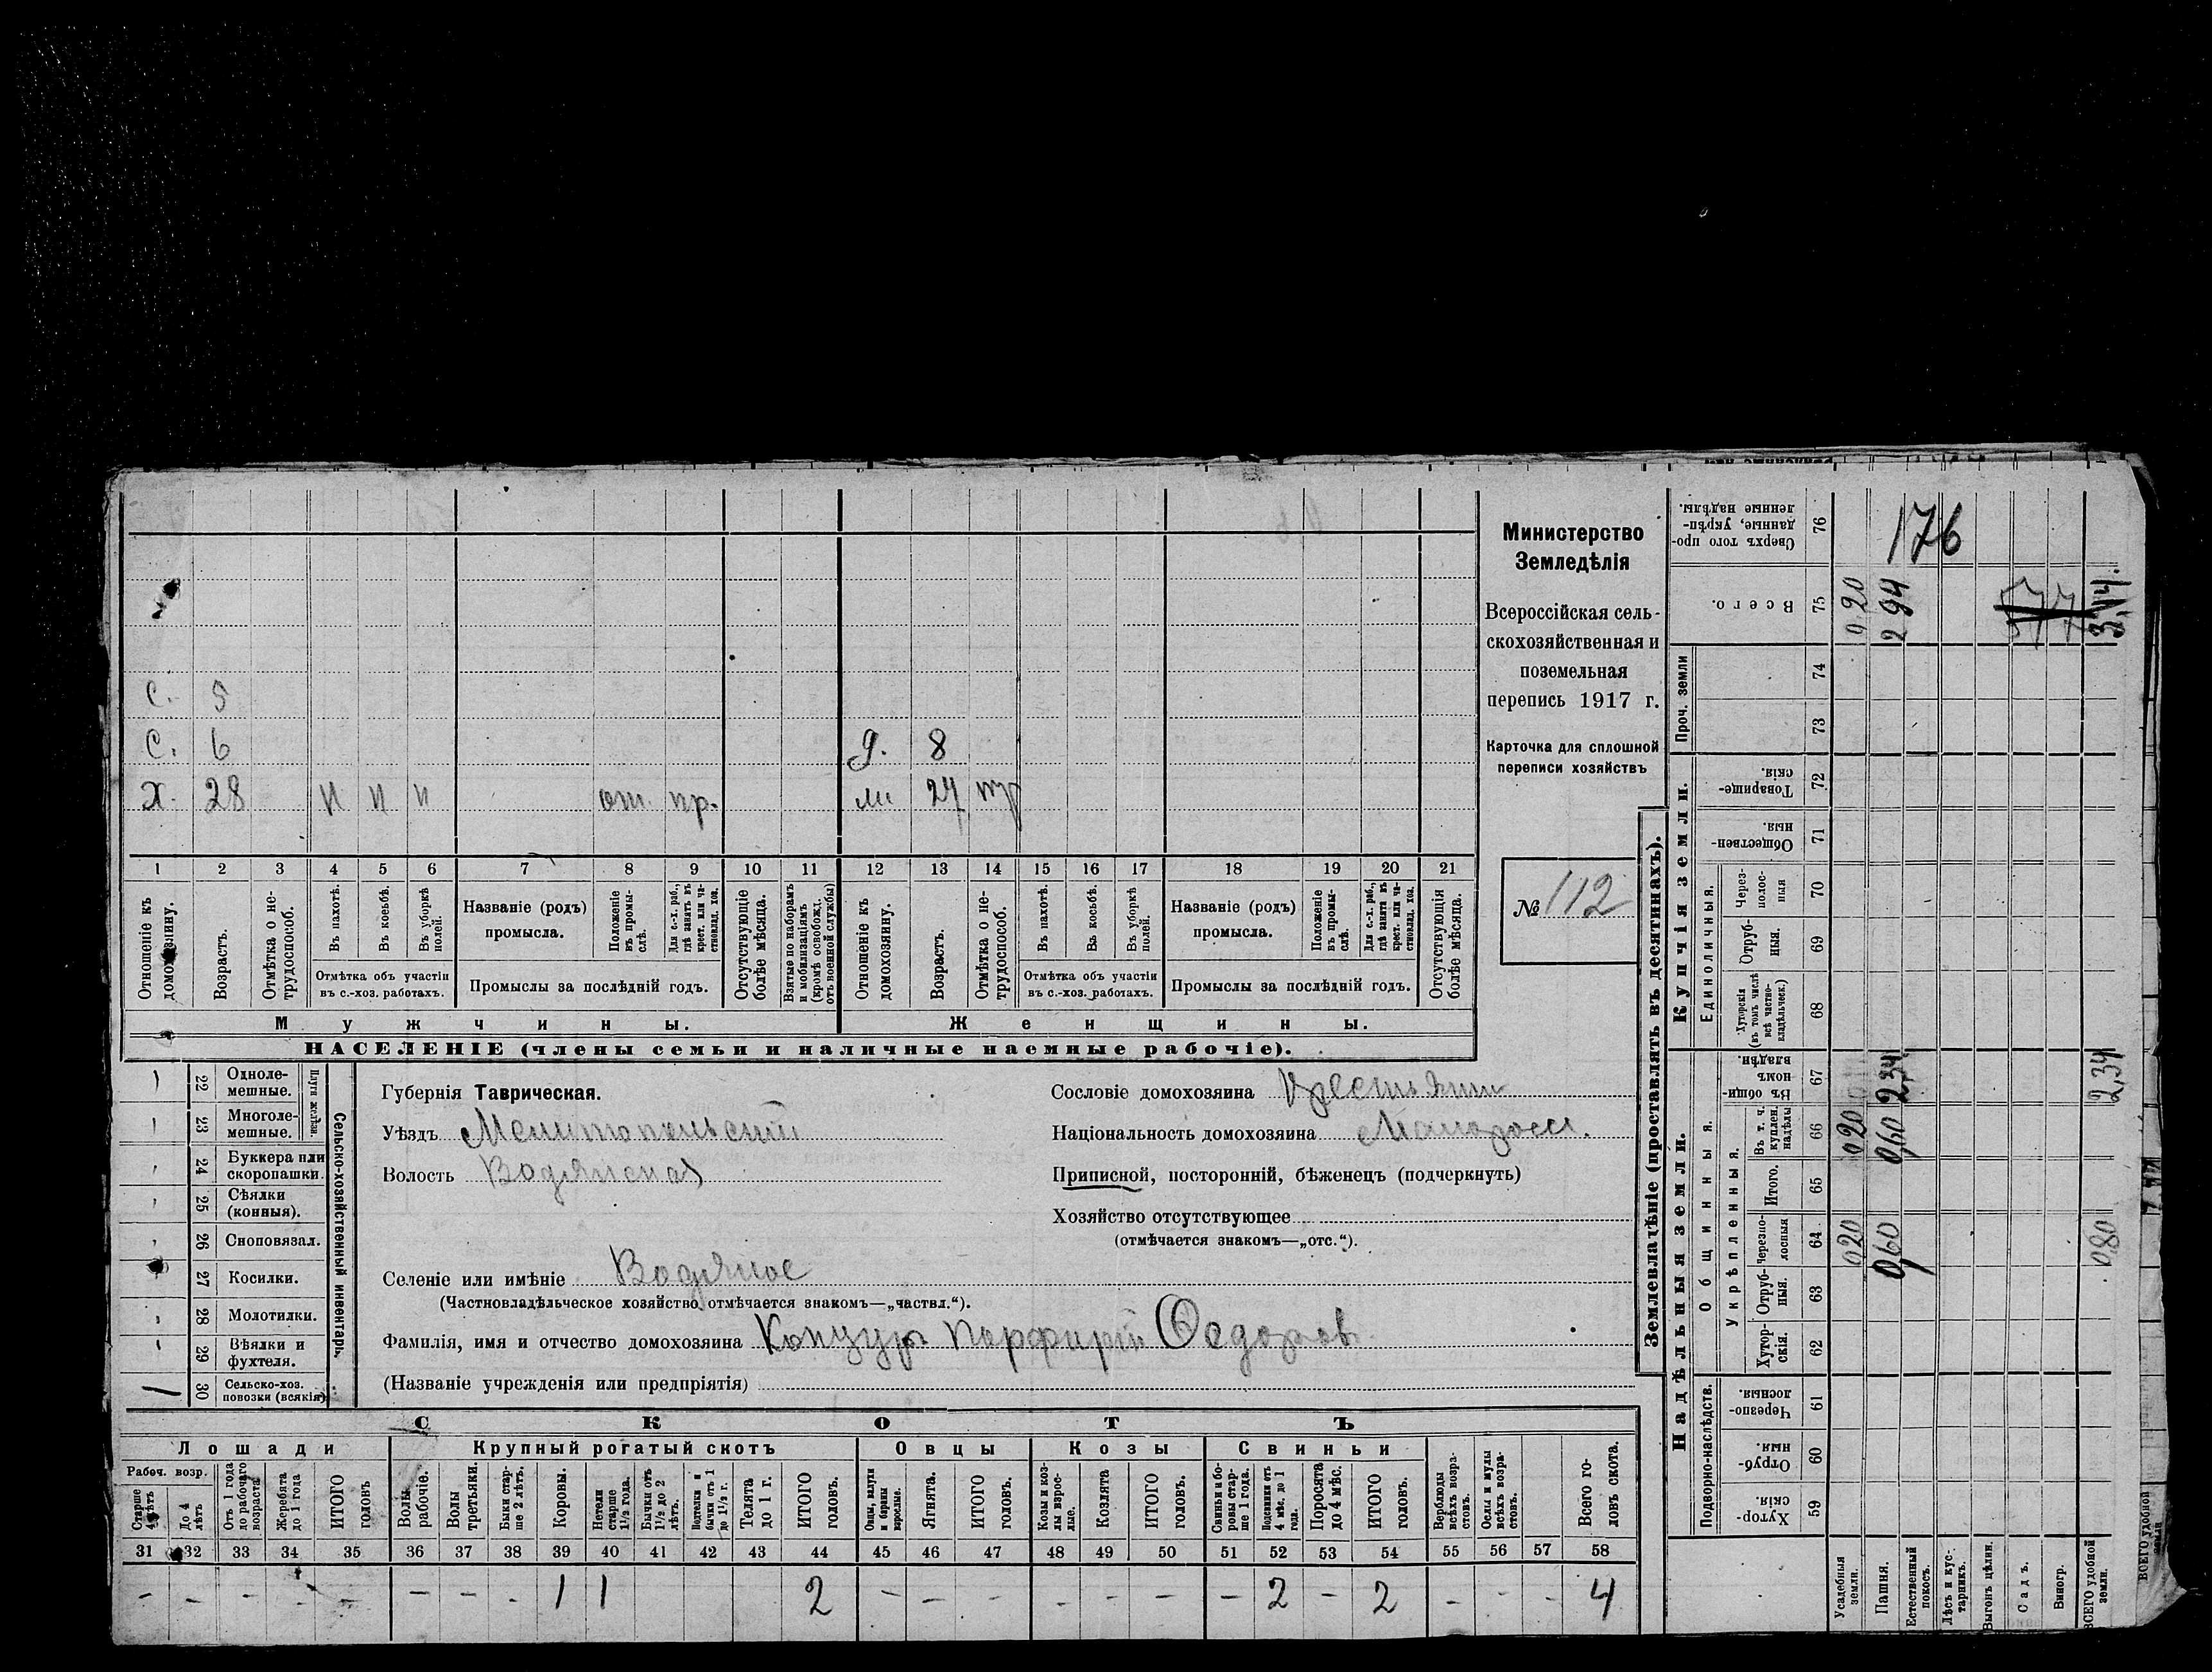 С. 5
С. 6
Д. 8
Х. 28 п п п от. пр.
27
1 2 3 4 5 6 7 8 9 10 11 12 13 14 15 16 17 18 19 20 21
Отношеніе къ домохозяину.
Возрастъ.
Отмѣтка о нетрудоспособ.
Въ пахотѣ.
Въ косьбѣ.
Въ уборкѣ полей.
Отмѣтка объ участіи въ с.-хоз. работахъ.
Названіе (родъ) промысла.
Положеніе въ промыслѣ.
Для с.-х. раб., гдѣ занятъ въ крест. или частновлад. хоз.
Промыслы за послѣдній годъ.
Отсутствующіе болѣе мѣсяца.
Взятые по наборамъ и мобилизаціямъ (кромѣ освобожд. отъ военной службы)
Отношеніе къ домохозяину.
Возрастъ.
Отмѣтка о нетрудоспособ.
Въ пахотѣ.
Въ косьбѣ.
Въ уборкѣ полей.
Отмѣтка объ участіи въ с.-хоз. работахъ.
Названіе (родъ) промысла.
Положеніе въ промыслѣ.
Для с.-х. раб., гдѣ занята въ крест. или частновлад. хоз.
Промыслы за послѣдній годъ.
Отсутствующія болѣе мѣсяца.
Мужчины.
Женщины.
НАСЕЛЕНІЕ (члены семьи и наличные наемные рабочіе).
Министерство
Земледѣлія
Всероссійская сель-
скохозяйственная и
поземельная
перепись 1917 г.
Карточка для сплошной
переписи хозяйствъ
№ 112
22 Однолемешные.
23 Многолемешные.
Плуги желѣзн.
24 Буккера или скоропашки.
25 Сѣялки (конныя).
26 Сноповязал.
27 Косилки.
28 Молотилки.
29 Вѣялки и фухтеля.
30 Сельско-хоз. повозки (всякія) 1
Сельско-хозяйственный инвентарь.
Губернія Таврическая.
Уѣздъ Мелитопольскій
Волость Водянская
Селеніе или имѣніе Водяное
(Частновладѣльческое хозяйство отмѣчается знакомъ—„частвл.“).
Фамилія, имя и отчество домохозяина Кокцуръ Порфирій Ѳедоровъ
(Названіе учрежденія или предпріятія)
Сословіе домохозяина Крестьянин
Національность домохозяина Малоросс.
Приписной, посторонній, бѣженецъ (подчеркнуть)
Хозяйство отсутствующее
(отмѣчается знакомъ—„отс.“).
СКОТЪ
Лошади
Крупный рогатый скотъ
Овцы
Козы
Свиньи
Рабоч. возр.
Старше 4 лѣтъ
До 4 лѣтъ
Отъ 1 года до рабочаго возраста
Жеребята до 1 года
ИТОГО головъ
Волы рабочіе.
Волы третьяки.
Быки старше 2 лѣтъ.
Коровы.
Нетели старше 1½ года.
Бычки отъ 1½ до 2 лѣтъ.
Подтелки и бычки отъ 1 до 1½ г.
Телята до 1 г.
ИТОГО головъ.
Овцы, валухи и бараны взрослые.
Ягнята.
ИТОГО головъ.
Козы и козлы взрослые.
Козлята
ИТОГО головъ.
Свиньи и боровы старше 1 года.
Подсвинки отъ 4 мѣс. до 1 года.
Поросята до 4 мѣс.
ИТОГО головъ.
Верблюды всѣхъ возрастовъ.
Ослы и мулы всѣхъ возрастовъ.
Всего головъ скота.
31 32 33 34 35 36 37 38 39 40 41 42 43 44 45 46 47 48 49 50 51 52 53 54 55 56 57 58
- - - - - - - - 1 1 2 - - - - - - - 2 - 2 - - - 4
Землевладѣніе (проставлять въ десятинахъ).
Надѣльныя земли.
Купчія земли.
Проч. земли
Подворно-наслѣдств.
Общинныя.
Укрѣпленныя.
Единоличныя.
Хуторскія 59
Отрубныя. 60
Черезполосныя. 61
Хуторскія. 62
Отрубныя. 63
Черезполосныя 64
Итого. 65
Въ т. ч. куплен. надѣлы 66
Въ общинномъ владѣн. 67
Хуторскія (въ томъ числѣ всѣ частновладѣльческ.) 68
Отрубныя. 69
Черезполосныя 70
Общественныя. 71
Товарищескія. 72
73
74
Всего. 75
Сверхъ того проданные, укрѣпленные надѣлы. 76
Усадебныя земли. 0,20 0,20 0,20
Пашня. 0,60 0,60 2,34 2 94
Естественный покосъ.
Лѣсъ и кустарникъ.
Выгонъ цѣлин.
Садъ.
Виногр.
ВСЕГО удобной земли. 0,80 2,34 3,14.
176
577
ВСЕГО удобной земли